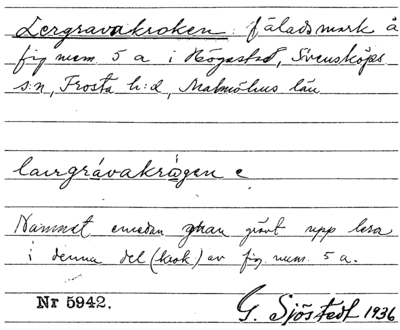 Lergravakroken: fäladsmark å
fig num. 5 a i Högastad, Svensköps
s:n, Frosta h:d, Malmöhus län
lavrgrávakrȧgen c
Namnet emedan man grävt upp lera
i denna del (krok) av fig. num. 5 a.
Nr 5942.
G. Sjöstedt 1936